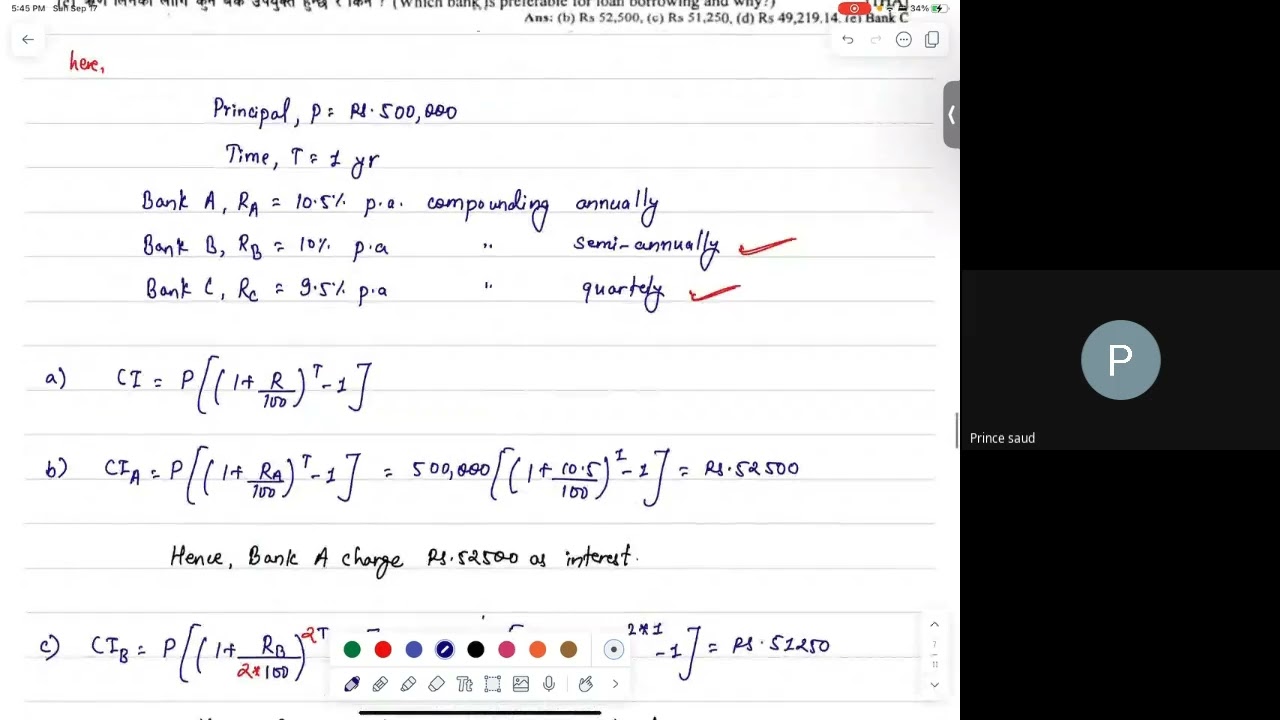 5:45 PM Sun Sep 17
34%
(Which bank is preferable for loan borrowing and why?)
Ans: (b) Rs 52,500, (c) Rs 51,250, (d) Rs 49,219.14. (e) Bank C
here,
Principal, P = Rs. 500,000
Time, T = 1 yr
Bank A, RA = 10.5% p.a. compounding annually
Bank B, RB = 10% p.a " semi-annually
Bank C, RC = 9.5% p.a " quartely
a) CI = P[(1+R/100)^T - 1]
b) CIA = P[(1+RA/100)^T - 1] = 500,000[(1+10.5/100)^1 - 1] = Rs. 52500
Hence, Bank A charge Rs. 52500 as interest.
c) CIB = P[(1+RB/2*100)^2T 2*1 - 1] = Rs. 51250
Tt
7
11
P
Prince saud